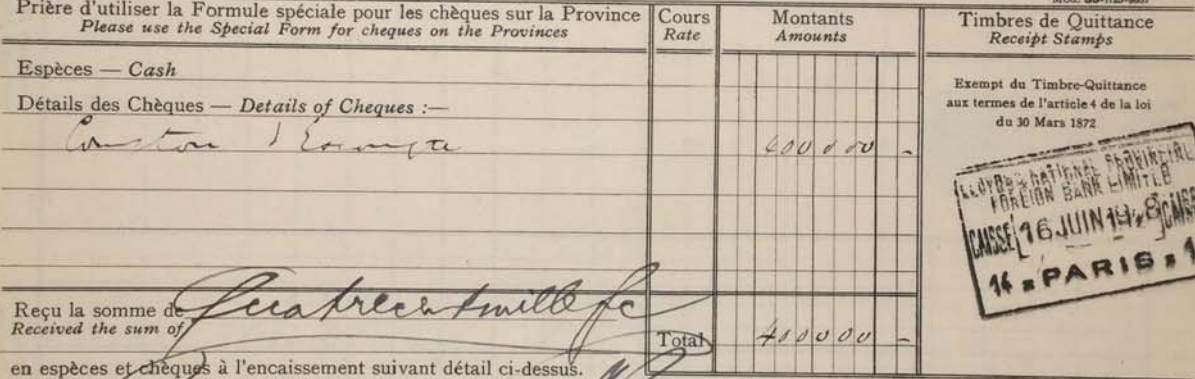 Prière d'utiliser la Formule spéciale pour les chèques sur la Province
Please use the Special Form for cheques on the Provinces
Cours
Rate
Montants
Amounts
Timbres de Quittance
Receipt Stamps
Espèces — Cash
Détails des Chèques — Details of Cheques :—
Comptoir d'Escompte 400000 -
Exempt du Timbre-Quittance
aux termes de l'article 4 de la loi
du 30 Mars 1872
LLOYDS & NATIONAL PROVINCIAL
FOREIGN BANK LIMITED
CAISSE 16 JUIN CAISSE
14 PARIS
Reçu la somme de Quatre cent mille fc
Received the sum of
Total 400000 -
en espèces et chèques à l'encaissement suivant détail ci-dessus.